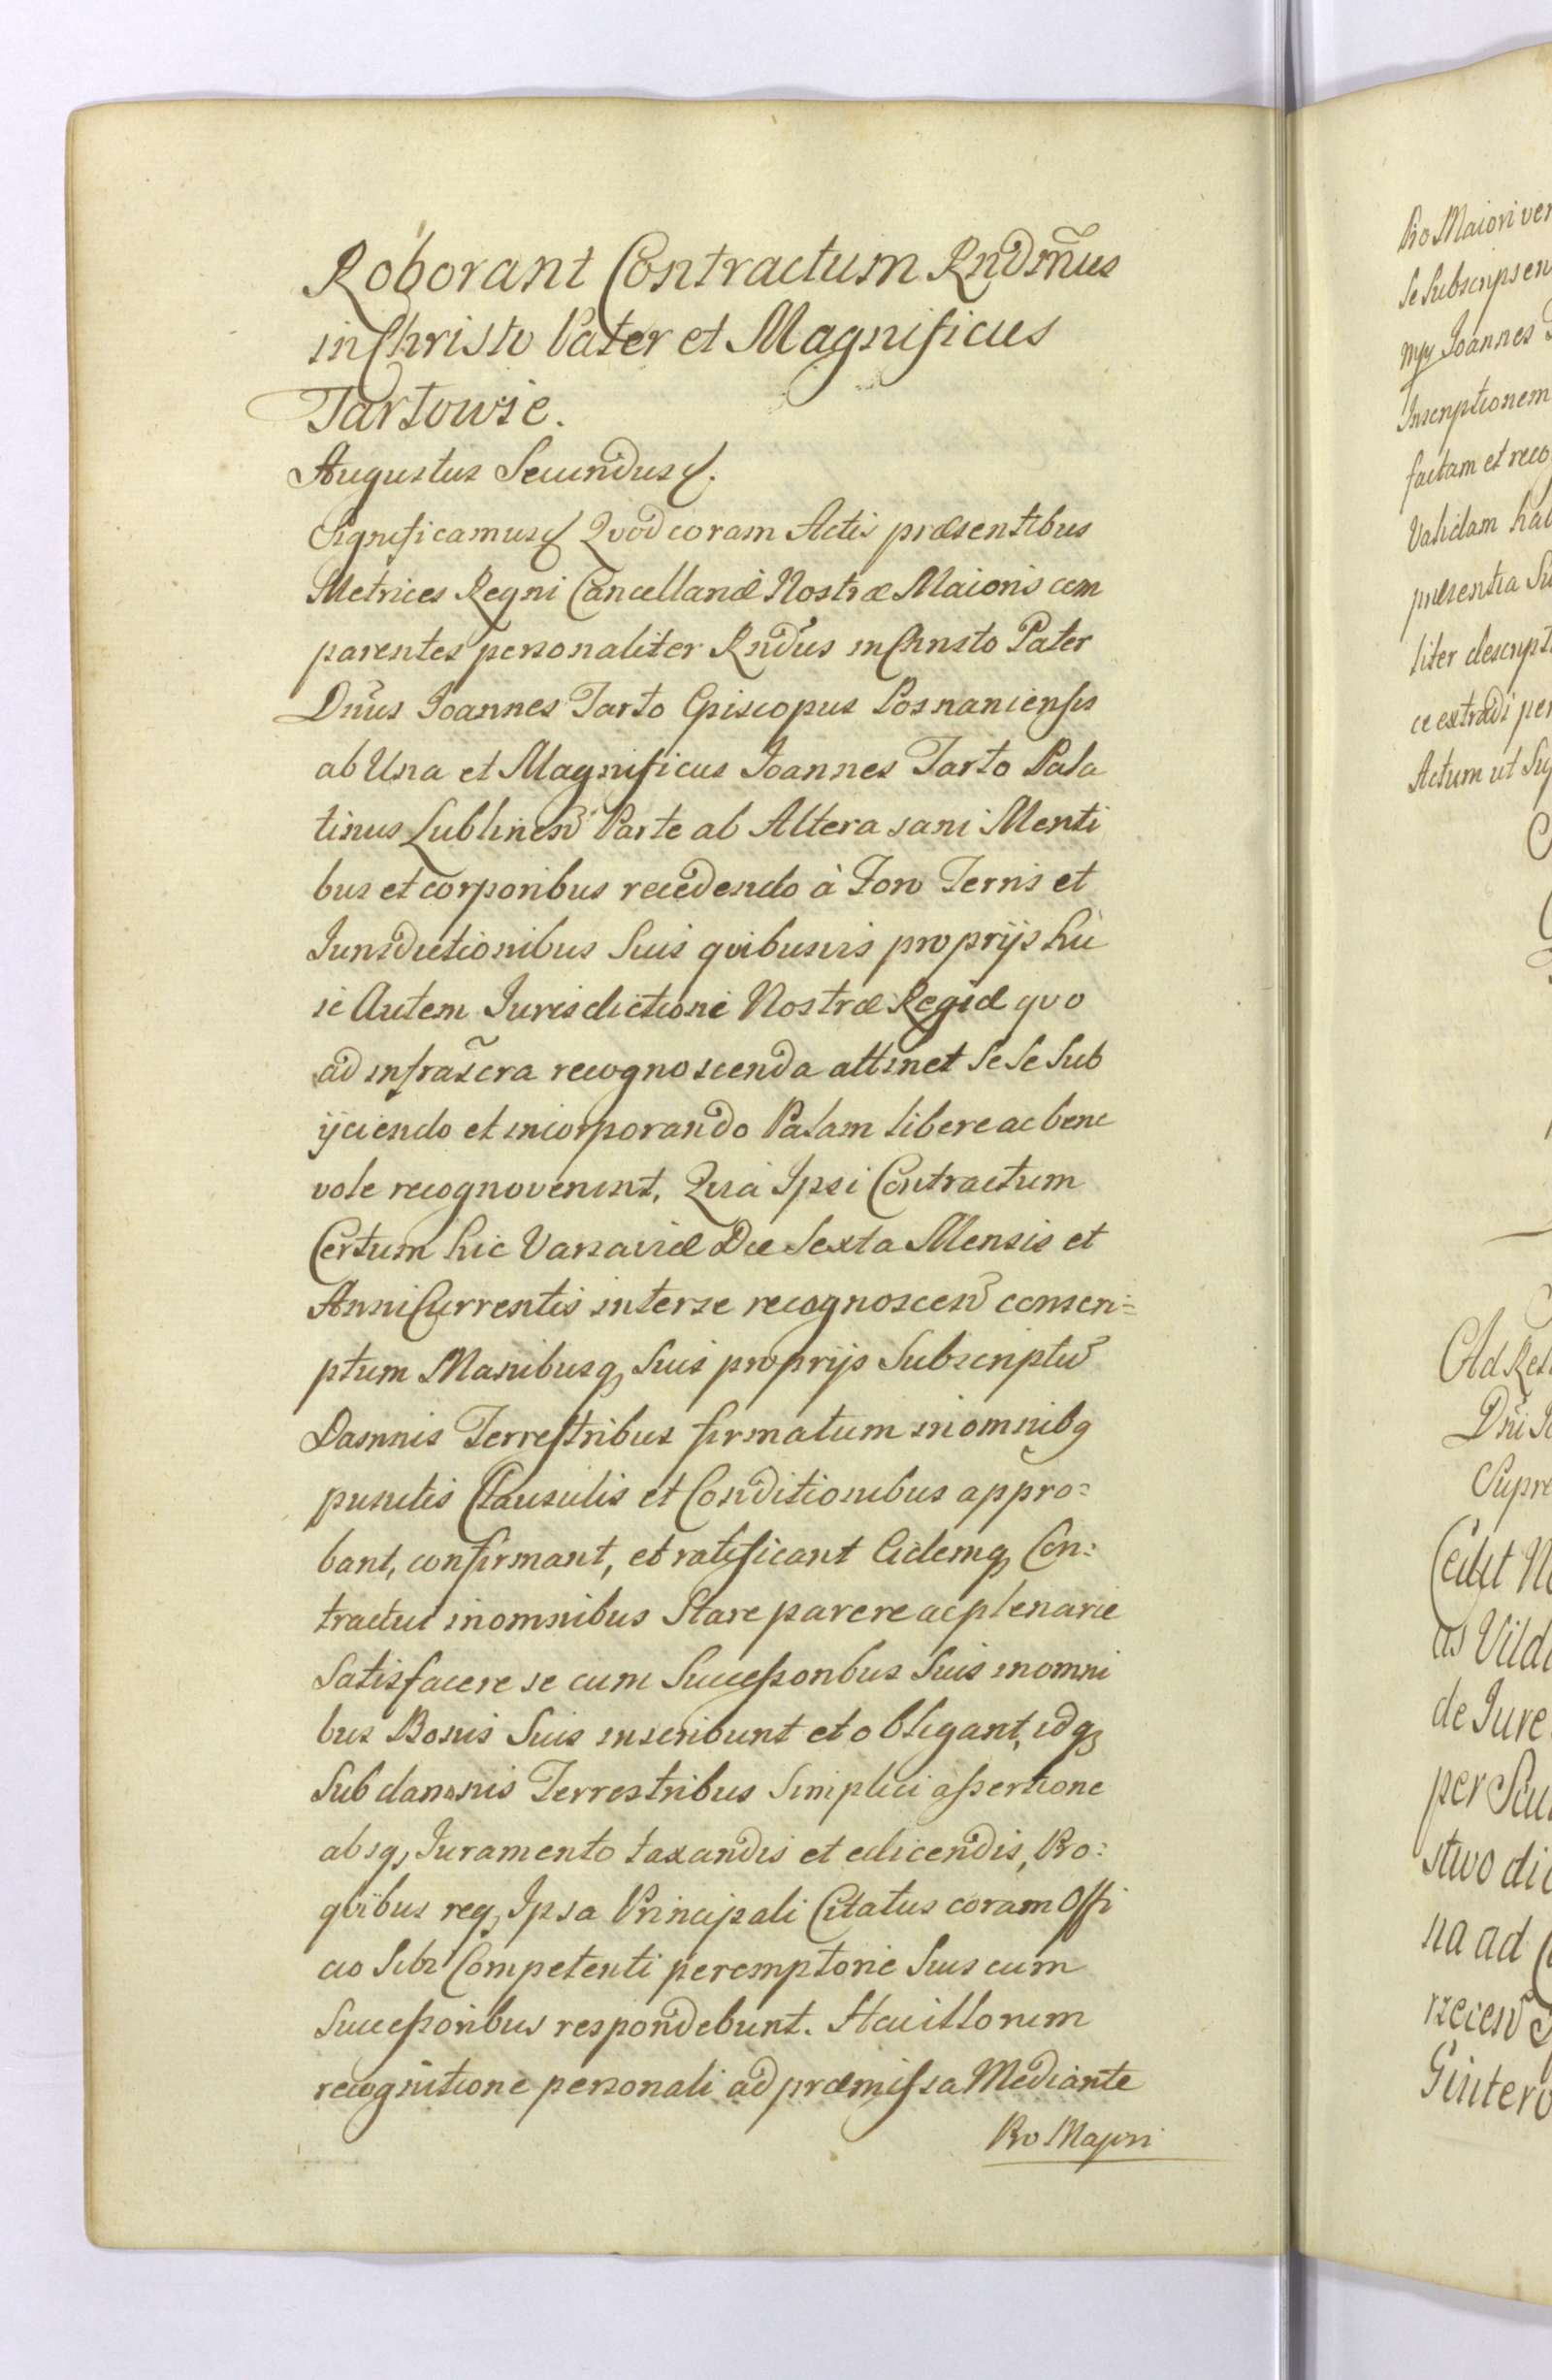 Roborant Contractum Rndm̃us
in Christo Pater et Magnificus
Tarłowie.
Augustus Secundus
Significamus Quod coram Actis præsentibus
Metrices Regni Cancellariæ Nostræ Maioris com
parentes personaliter Rndus in Christo Pater
Dnus Joannes Tarło Episcopus Posnaniensis
ab Una et Magnificus Joannes Tarło Pala
tinus Lublinen Parte ab Altera sani Menti
bus et corporibus recedendo à Foro Terris et
Jurisdictionibus Suis quibusvis proprijs hu
ic Autem Jurisdictioni Nostræ Regiæ quo
ad infrascra recognoscenda attinet Se Se Sub
ijciendo et incorporando Palam libere ac bene
vole recognoverunt, Quia Ipsi Contractum
Certum hic Varsaviæ Die Sexta Mensis et
Anni Currentis inter se recognoscen conscri=
ptum Manibusq Suis proprijs Subscriptu
Damnis Terrestribus firmatum in omnibq
punctis Clausulis et Conditionibus appro=
bant, confirmant, et ratificant Eidemq Con=
tractui in omnibus Stare parere ac plenarie
Satisfacere se cum Successoribus Suis in omni
bus Bonis Suis inscribunt et obligant, idq
Sub damnis Terrestribus Simplici assertione
absq Juramento taxandis et edicendis, Pro=
quibus req Ipsa Principali Citatus coram Offi
cio Sibi Competenti peremptorie Suis cum
Successoribus respondebunt. Hac illorum
recognitione personali ad præmissa Mediante
Pro Majori
Pro Maiori ver
Se Subscripsen
mpp Joannes T
Inscriptionem
factam et reco
Validam hab
præsentia Su
liter descript
ce extradi per
Actum ut Su
Ad Rel
Dni J
Supre
de Jure
per Su
stwo di
na ad
rzecen
Gintero